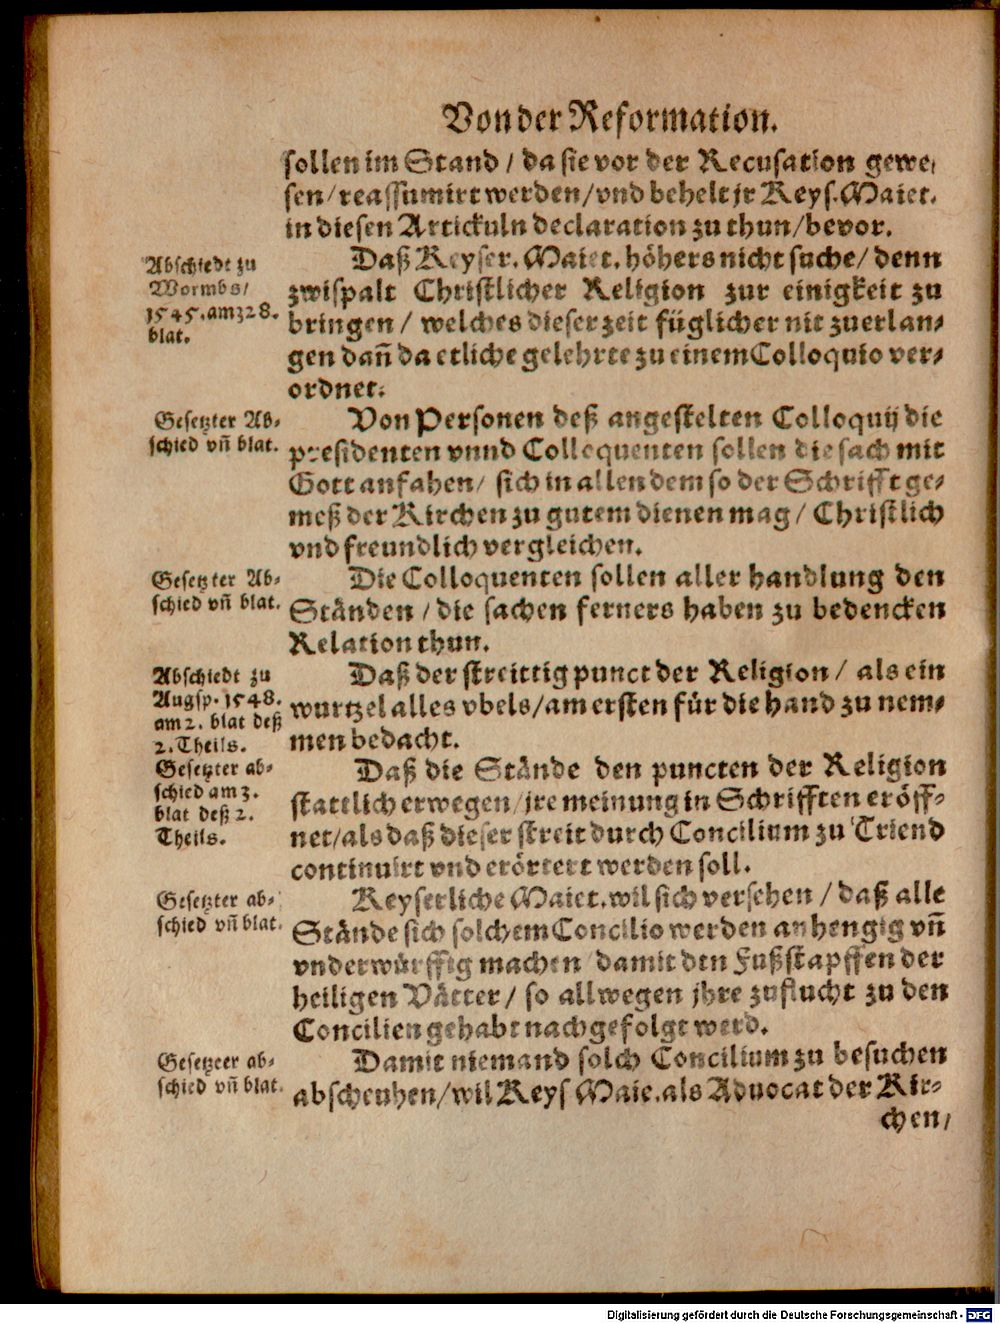 Von der Reformation.
sollen im Stand / da sie vor der Recusation gewe,
sen/ reassumirt werden/ vnd behelt jr Keys. Maiet.
in diesen Artickuln declaration zu thun/ bevor.
Abschiedt zu
Wormbs/
1545. am 328.
blat.
Daß Keyser. Maiet. höhers nicht suche/ denn
zwispalt Christlicher Religion zur einigkeit zu
bringen / welches dieser zeit füglicher nit zuerlan-
gen dañ da etliche gelehrte zu einem Colloquio ver-
ordnet.
Gesetzter Ab-
schied vñ blat.
Von Personen deß angestelten Colloquij die
presidenten vnnd Colloquenten sollen die sach mit
Gott anfahen/ sich in allen dem so der Schrifft ge-
meß der Kirchen zu gutem dienen mag / Christlich
vnd freundlich vergleichen.
Gesetzter Ab-
schied vñ blat.
Die Colloquenten sollen aller handlung den
Ständen / die sachen ferners haben zu bedencken
Relation thun.
Abschiedt zu
Augsp. 1548.
am 2. blat deß
2. Theils.
Daß der streittig punct der Religion / als ein
wurtzel alles vbels/ am ersten für die hand zu nem-
men bedacht.
Gesetzter ab-
schied am 3.
blat deß 2.
Theils.
Daß die Stände den puncten der Religion
stattlich erwegen/ jre meinung in Schrifften eröff-
net/ als daß dieser streit durch Concilium zu Triend
continuirt vnd erörtert werden soll.
Gesetzter ab-
schied vñ blat.
Keyserliche Maiet. wil sich versehen / daß alle
Stände sich solchem Concilio werden anhengig vñ
vnderwürffig machen damit den Fußstapffen der
heiligen Vätter / so allwegen jhre zuflucht zu den
Concilien gehabt nachgefolgt werd.
Gesetzter ab-
schied vñ blat.
Damit niemand solch Concilium zu besuchen
abscheuhen/ wil Keys Maie. als Advocat der Kir-
chen/
Digitalisierung gefördert durch die Deutsche Forschungsgemeinschaft - DFG